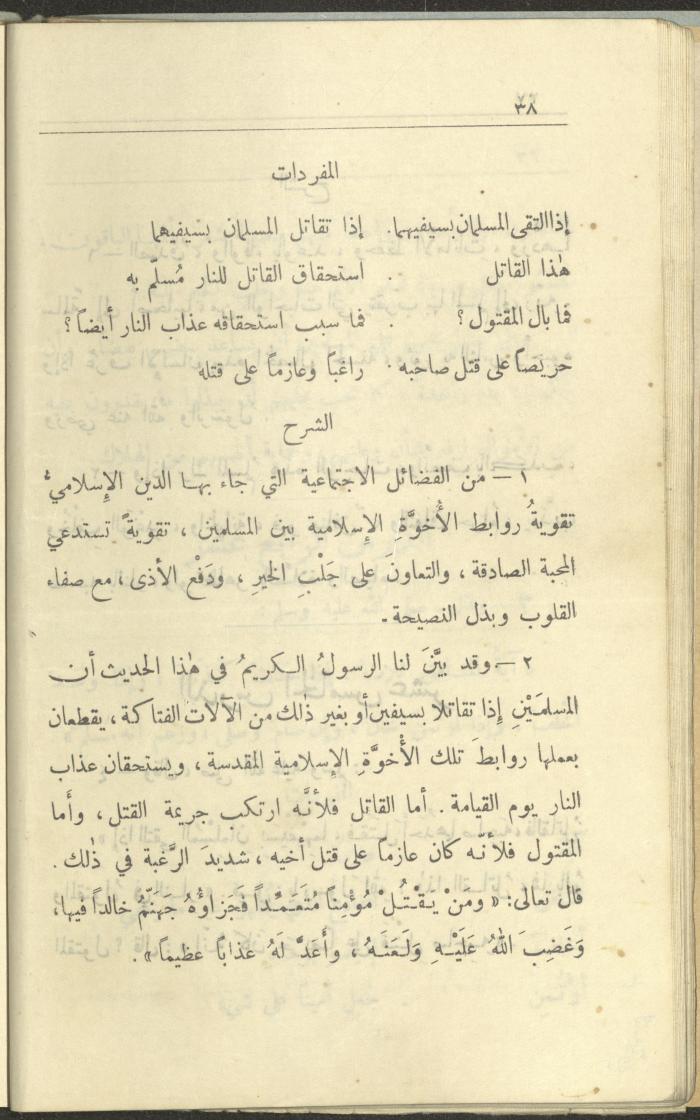 ٣٨
المفردات
إذا التقى المسلمان بسيفيهما. إذا تقاتل المسلمان بسيفيهما
هٰذا القاتل . استحقاق القاتل للنار مُسلّم به
فما بال المقتول؟ . فما سبب استحقاقه عذاب النار أيضاً؟
حريصاً على قتل صاحبه . راغباً وعازماً على قتله
الشرح
١ – من الفضائل الاجتماعية التي جاء بها الدين الإسلاميُّ
تقويةُ روابط الأُخوَّةِ الإسلامية بين المسلمين، تقويةً تستدعي
المحبة الصادقة، والتعاونَ على جَلْبِ الخيرِ، ودَفْع الأذى، مع صفاء
القلوب وبذل النصيحة.
٢ – وقد بيَّنَ لنا الرسولُ الكريمُ في هٰذا الحديث أن
المسلمَيْنِ إذا تقاتلا بسيفين أو بغير ذٰلك من الآلات الفتاكة، يقطعان
بعملها روابطَ تلك الأُخوَّةِ الإسلامية المقدسة، ويستحقان عذاب
النار يوم القيامة. أما القاتل فلأنَّه ارتكب جريمة القتل، وأما
المقتول فلأنّه كان عازماً على قتل أخيه، شديدَ الرَّغبة في ذٰلك.
قال تعالى: «ومَنْ يَقْتُلْ مُؤْمِناً مُتَعَمِّداً فَجَزاؤُهُ جَهَنَّمُ خالداً فيها،
وَغَضِبَ اللهُ عَلَيْهِ وَلَعَنَهُ، وأَعَدَّ لَهُ عذاباً عظيماً».